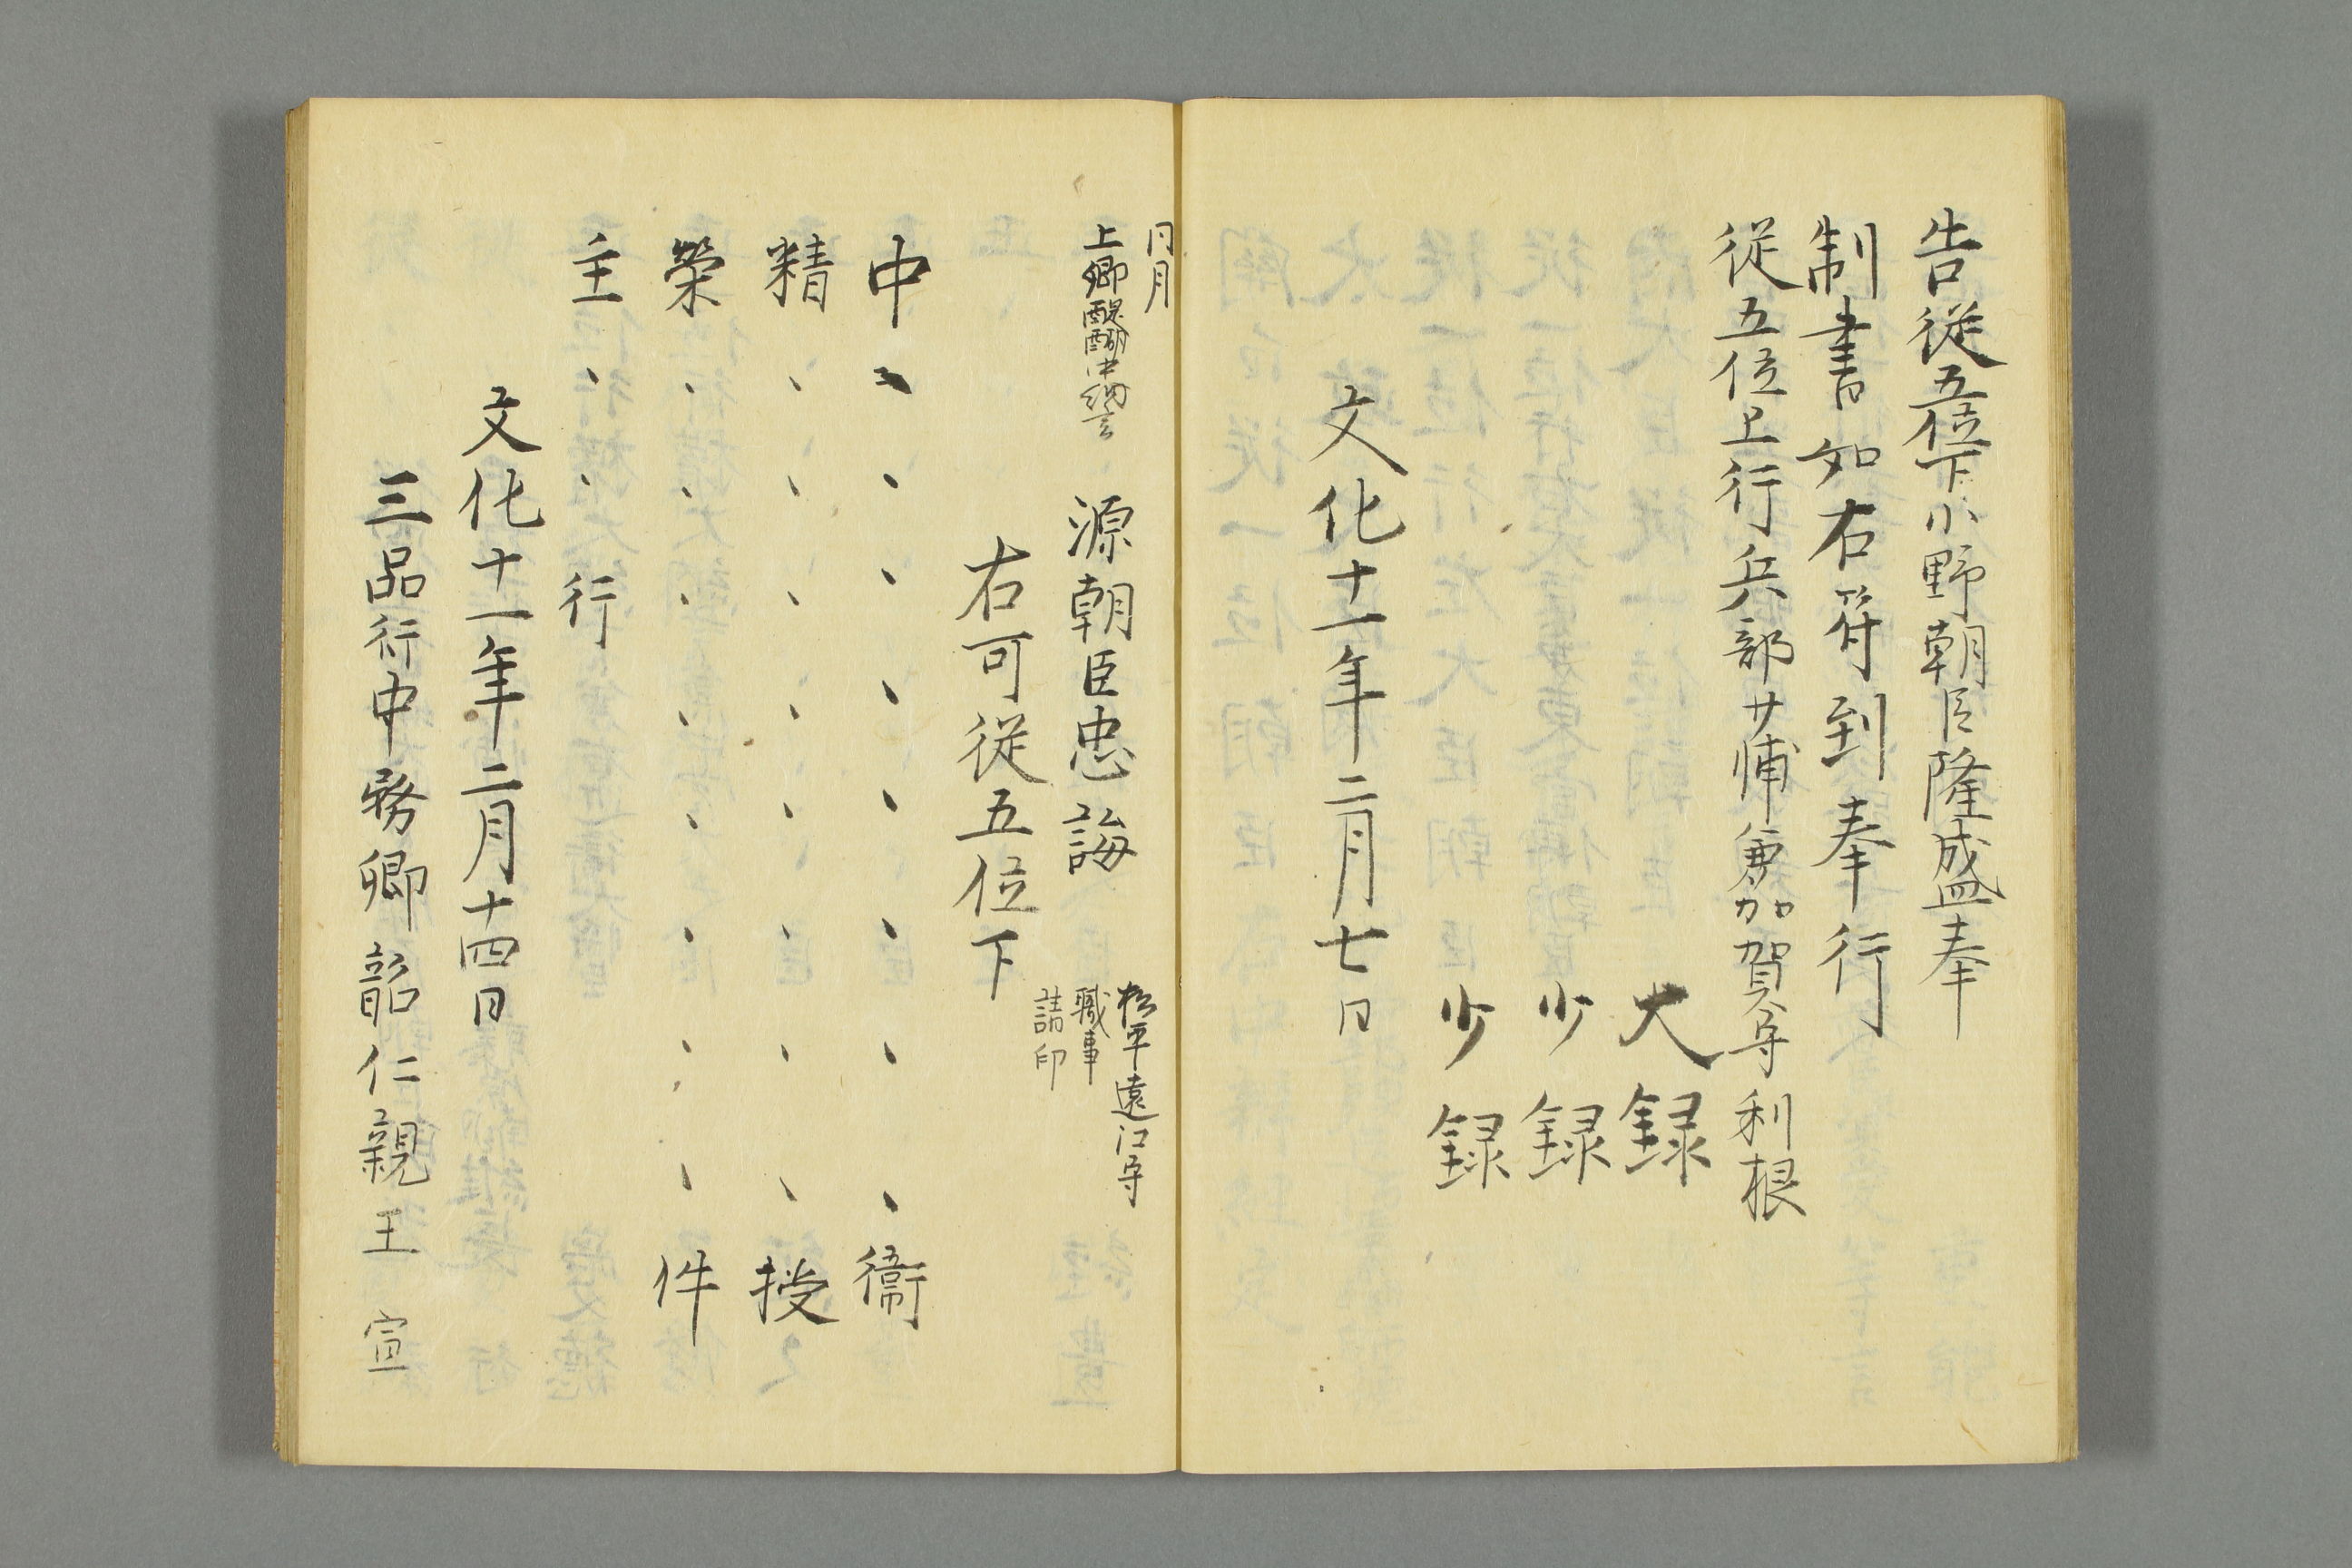 告從五位下小野朝臣隆盛奉
制書如右符到奉行
從五位上行兵部少輔兼加賀守利根
大録
少録
少録
文化十一年二月七日
同月
上卿醍醐中納言
源朝臣忠誨
松平遠江守
職事
請印
右可從五位下
中、、、、、、、、衞
精、、、、、、、、授
榮、、、、、、、、件
主、、行
文化十一年二月十四日
三品行中務卿韶仁親王宣